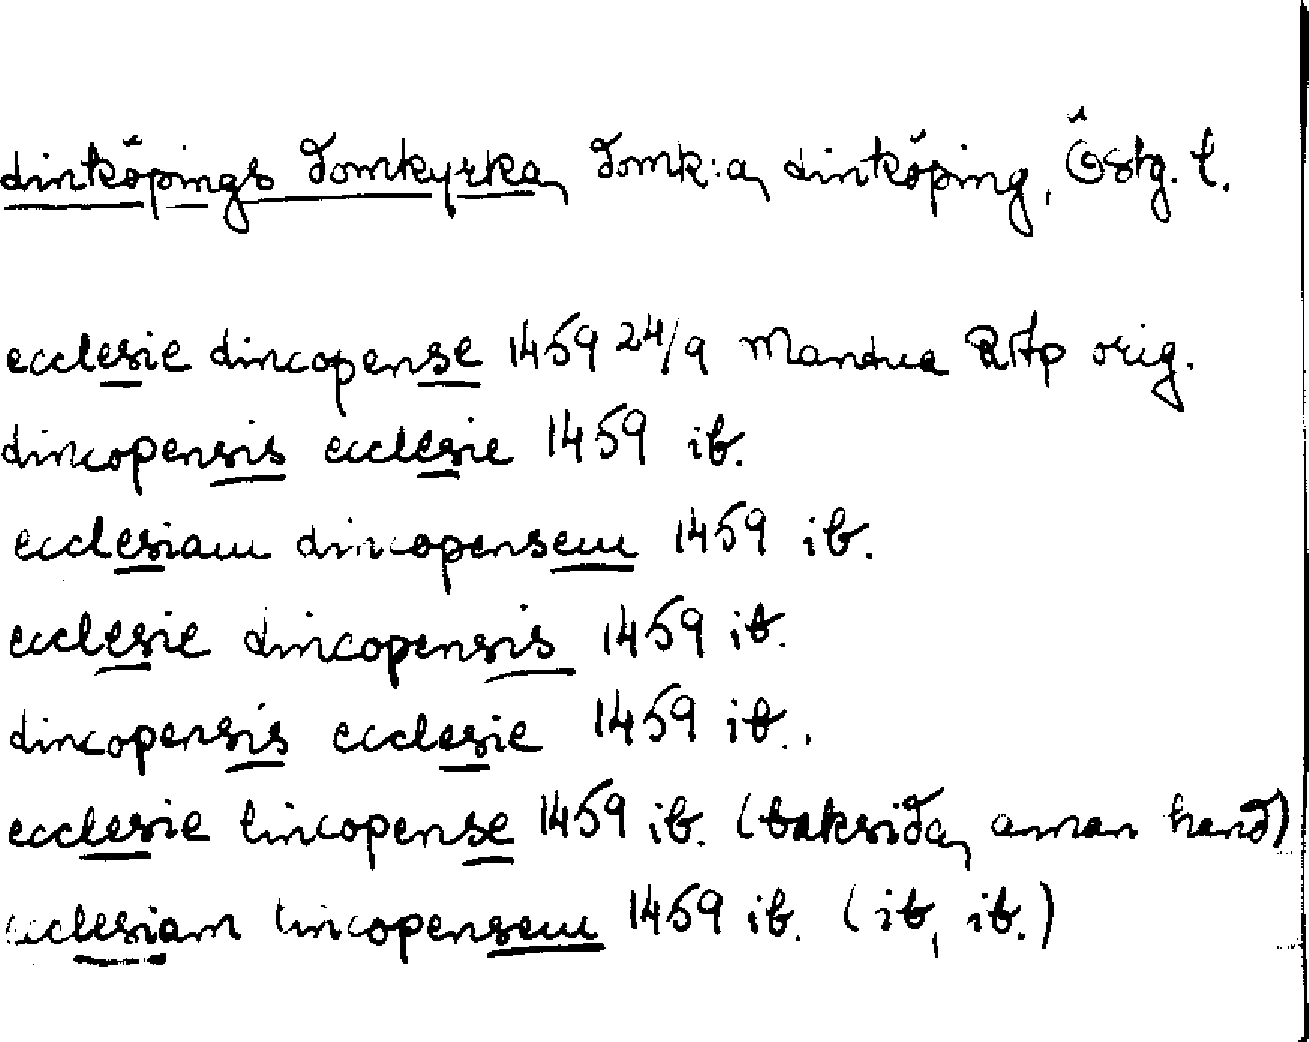 Linköpings domkyrka, domk:a, Linköping, Östg. l.
ecclesie Lincopense 1459 24/9 Mantua RAp orig.
Lincopensis ecclesie 1459 ib.
ecclesiam Lincopensem 1459 ib.
ecclesie Lincopensis 1459 ib.
Lincopensis ecclesie 1459 ib.
ecclesie lincopense 1459 ib. (baksida, annan hand)
ecclesiam lincopensem 1459 ib. (ib, ib.)